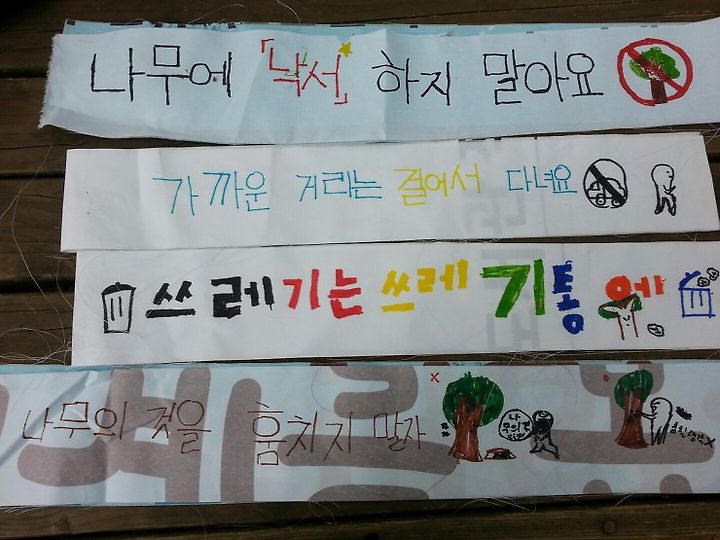 나무에 「낙서」 하지 말아요
가까운 거리는 걸어서 다녀요
쓰레기는 쓰레기통에
나무의 것을 훔치지 말자